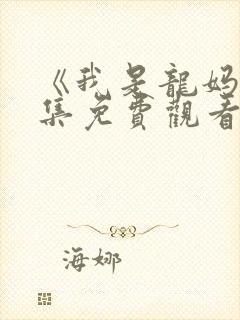 《我是龍媽
集免費觀看
海娜